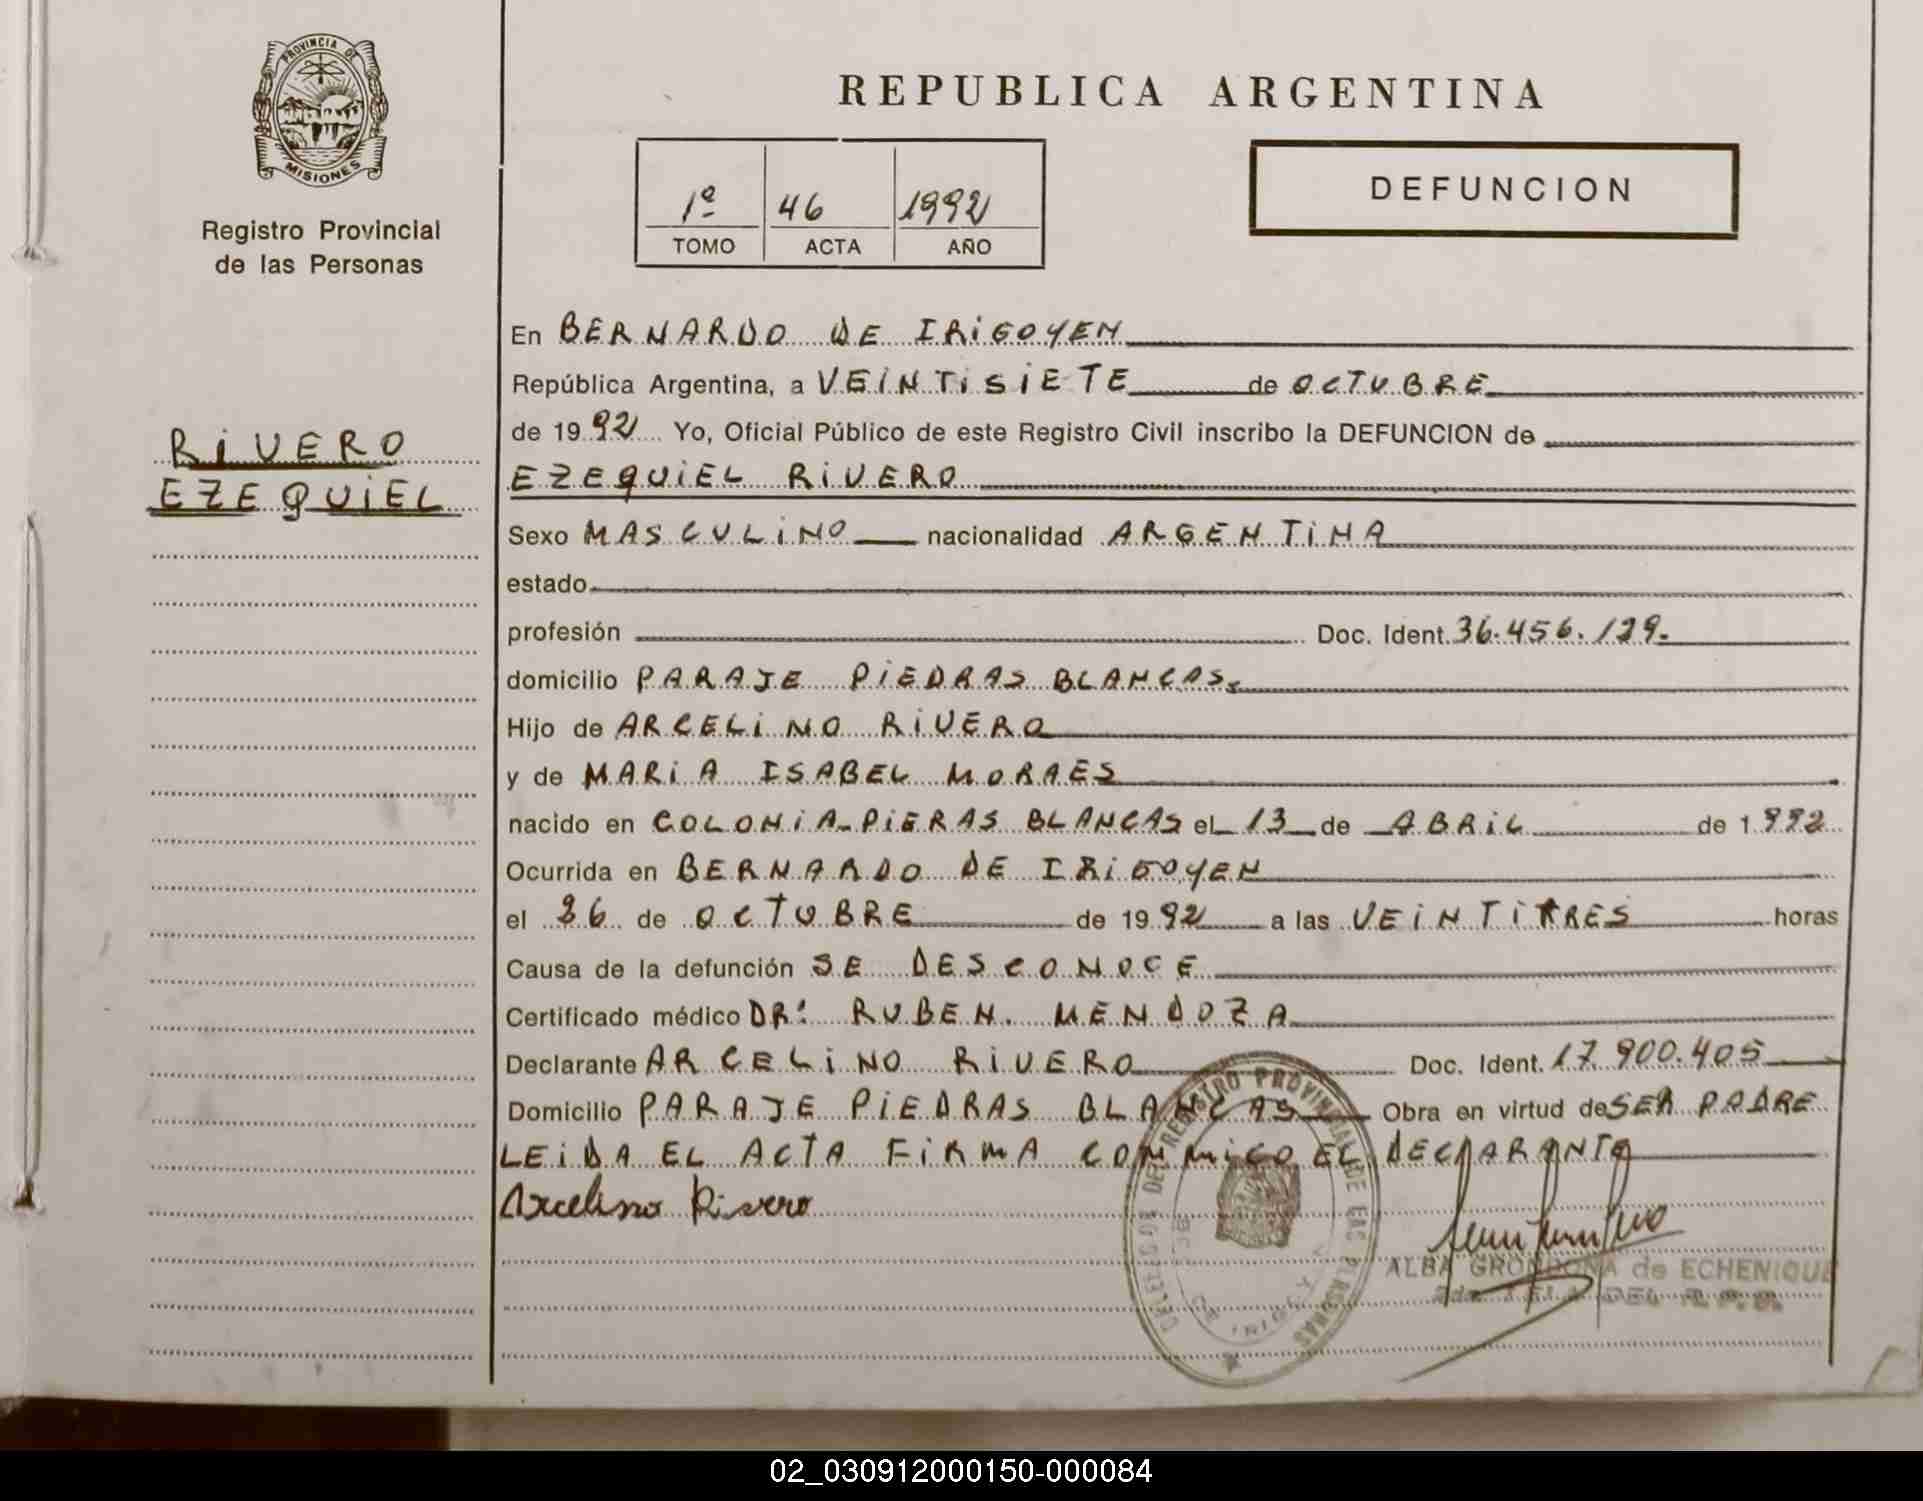 PROVINCIA DE
MISIONES
Registro Provincial
de las Personas
RIVERO
EZEQUIEL
REPUBLICA ARGENTINA
1º 46 1992
TOMO ACTA AÑO
DEFUNCION
En BERNARDO DE IRIGOYEN
República Argentina, a VEINTISIETE de OCTUBRE
de 1992 Yo, Oficial Público de este Registro Civil inscribo la DEFUNCION de
EZEQUIEL RIVERO
Sexo MASCULINO nacionalidad ARGENTINA
estado
profesión Doc. Ident. 36.456.129.
domicilio PARAJE PIEDRAS BLANCAS.
Hijo de ARCELINO RIVERO
y de MARIA ISABEL MORAES
nacido en COLONIA-PIERAS BLANCAS el 13 de ABRIL de 1992
Ocurrida en BERNARDO DE IRIGOYEN
el 26 de OCTUBRE de 1992 a las VEINTITRES horas
Causa de la defunción SE DESCONOCE
Certificado médico DR: RUBEN. MENDOZA
Declarante ARCELINO RIVERO Doc. Ident. 17.900.405
Domicilio PARAJE PIEDRAS BLANCAS Obra en virtud de SER PADRE
LEIDA EL ACTA FIRMA CONMIGO EL DECLARANTE
Arcelino Rivero
DEL REGISTRO PROVINCIAL DE LAS PERSONAS
ALBA GRONDONA de ECHENIQUE
DEL R. P. P.
02_030912000150-000084